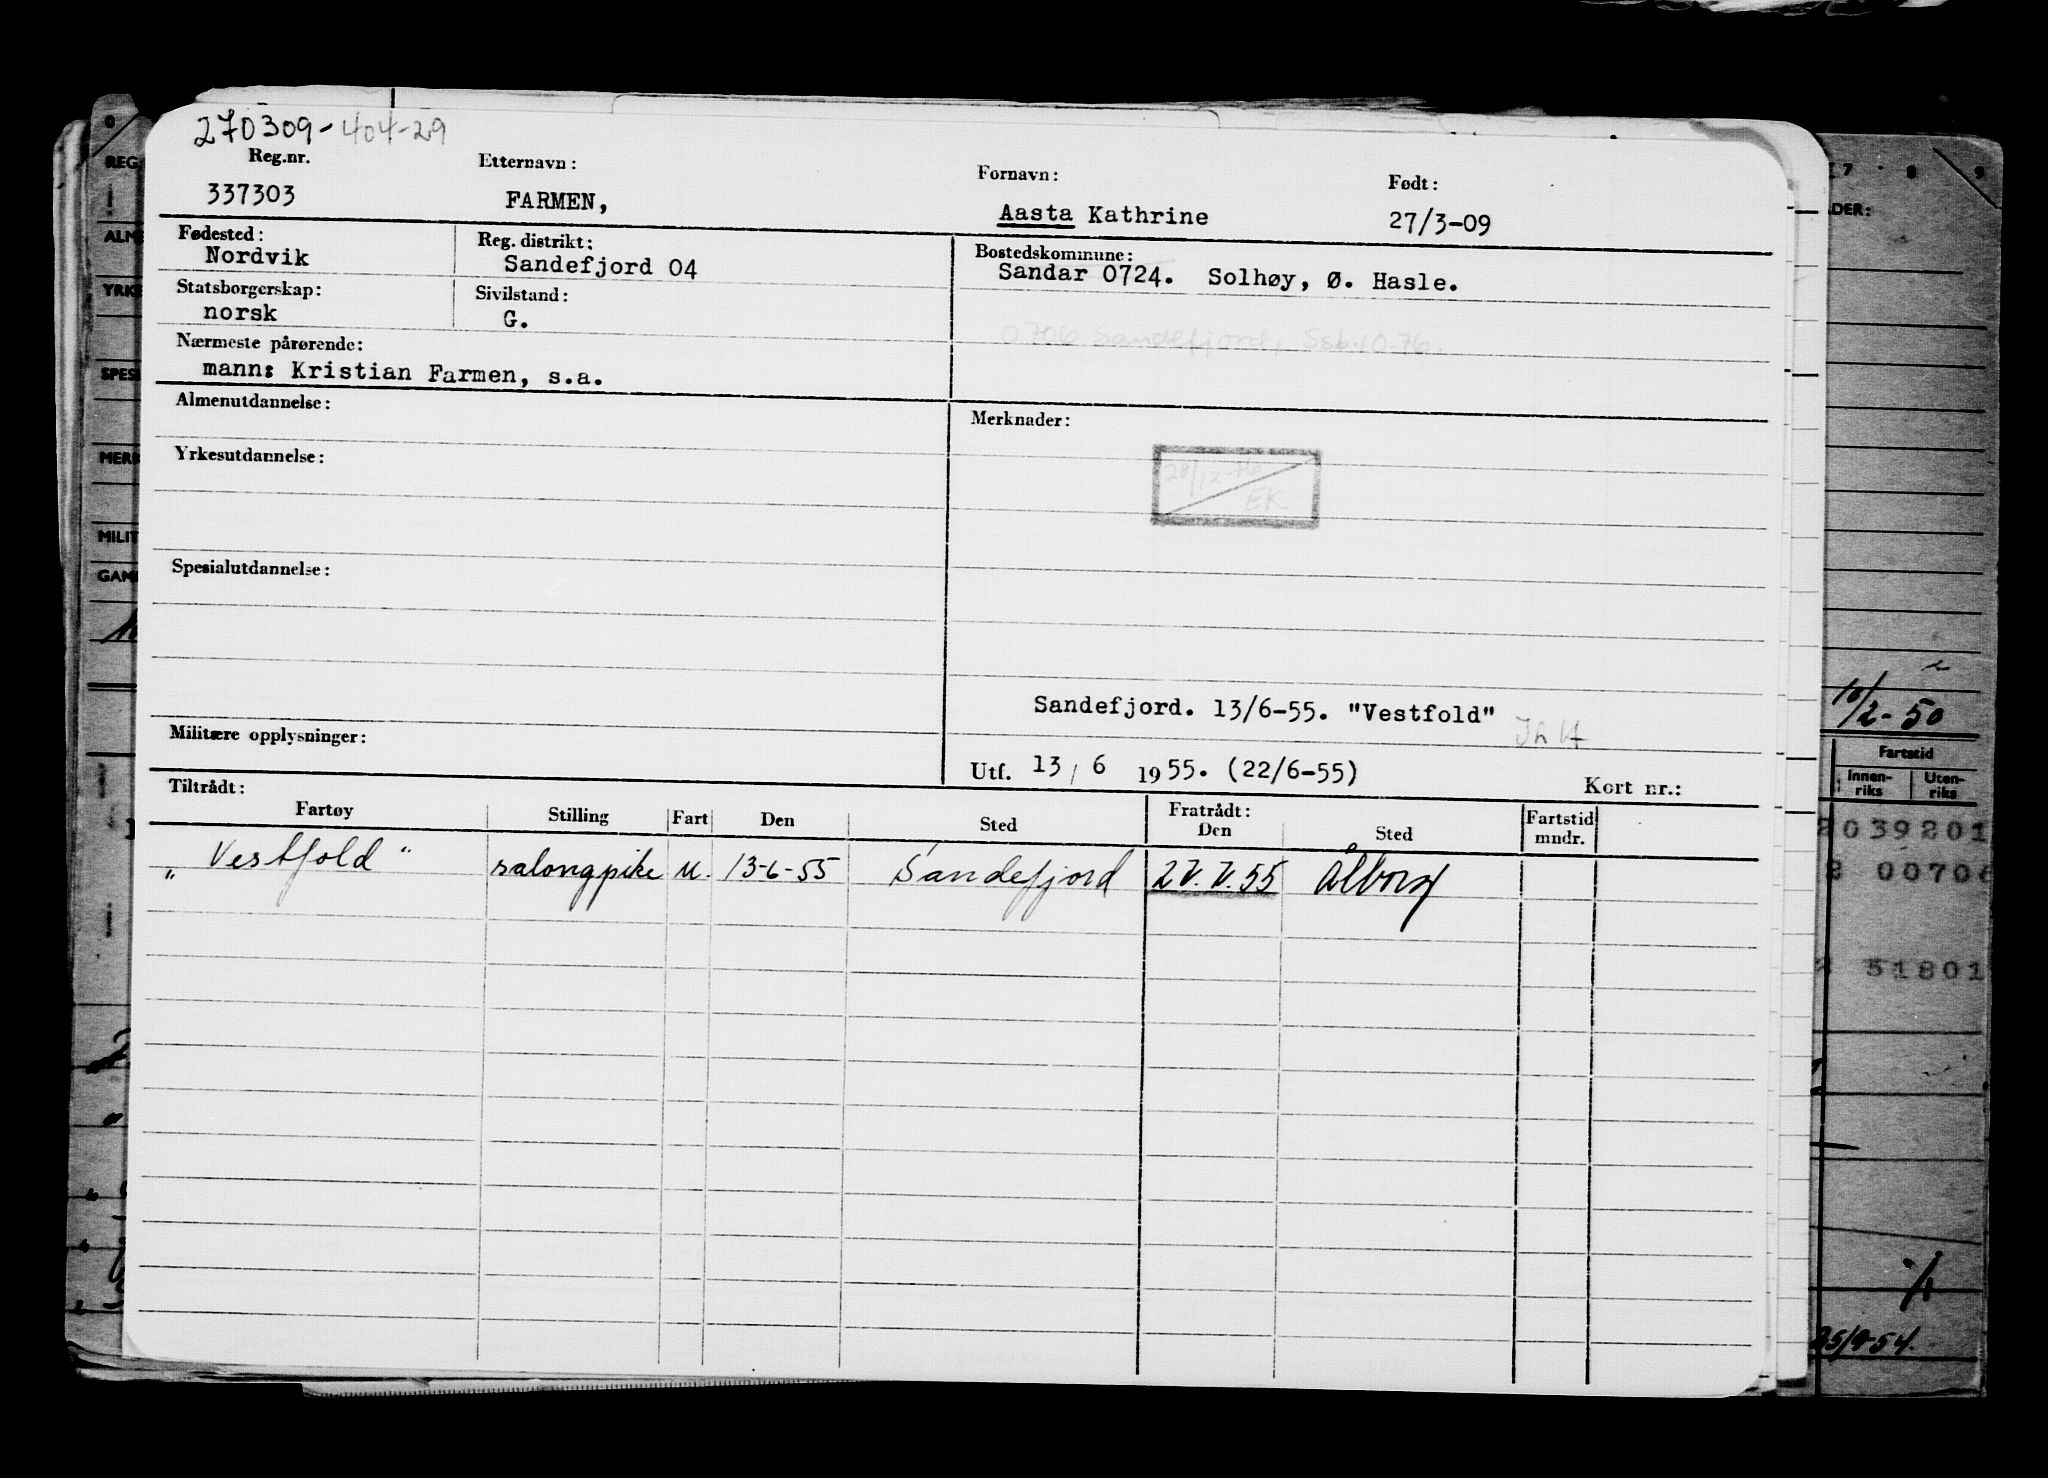 270309-404-29
Reg.nr. Etternavn: Fornavn: Født:
337303 FARMEN, Aasta Kathrine 27/3-09
Fødested: Reg. distrikt: Bostedskommune:
Nordvik Sandefjord 04 Sandar 0724. Solhøy, Ø. Hasle.
Statsborgerskap: Sivilstand:
norsk G.
0706 Sandefjord, Ssb.10-76.
Nærmeste pårørende:
mann: Kristian Farmen, s.a.
Almenutdannelse: Merknader:
Yrkesutdannelse:
28/12-76
EK
Spesialutdannelse:
Sandefjord. 13/6-55. "Vestfold"
Militære opplysninger:
Utf. 13 / 6 1955. (22/6-55) Kort nr.:
Tiltrådt: Fratrådt:
Fartøy Stilling Fart Den Sted Den Sted Fartstid mndr.
„Vestfold" salongpike U. 13-6-55 Sandefjord 2V.V.55 Ålborg
REG
ALM
YRKE
SPESI
MERK
MILIT
GAM
7 8 9
DER:
10/2-50
Fartstid
Innen-riks Uten-riks
2039201
00706
51801
25/9-54